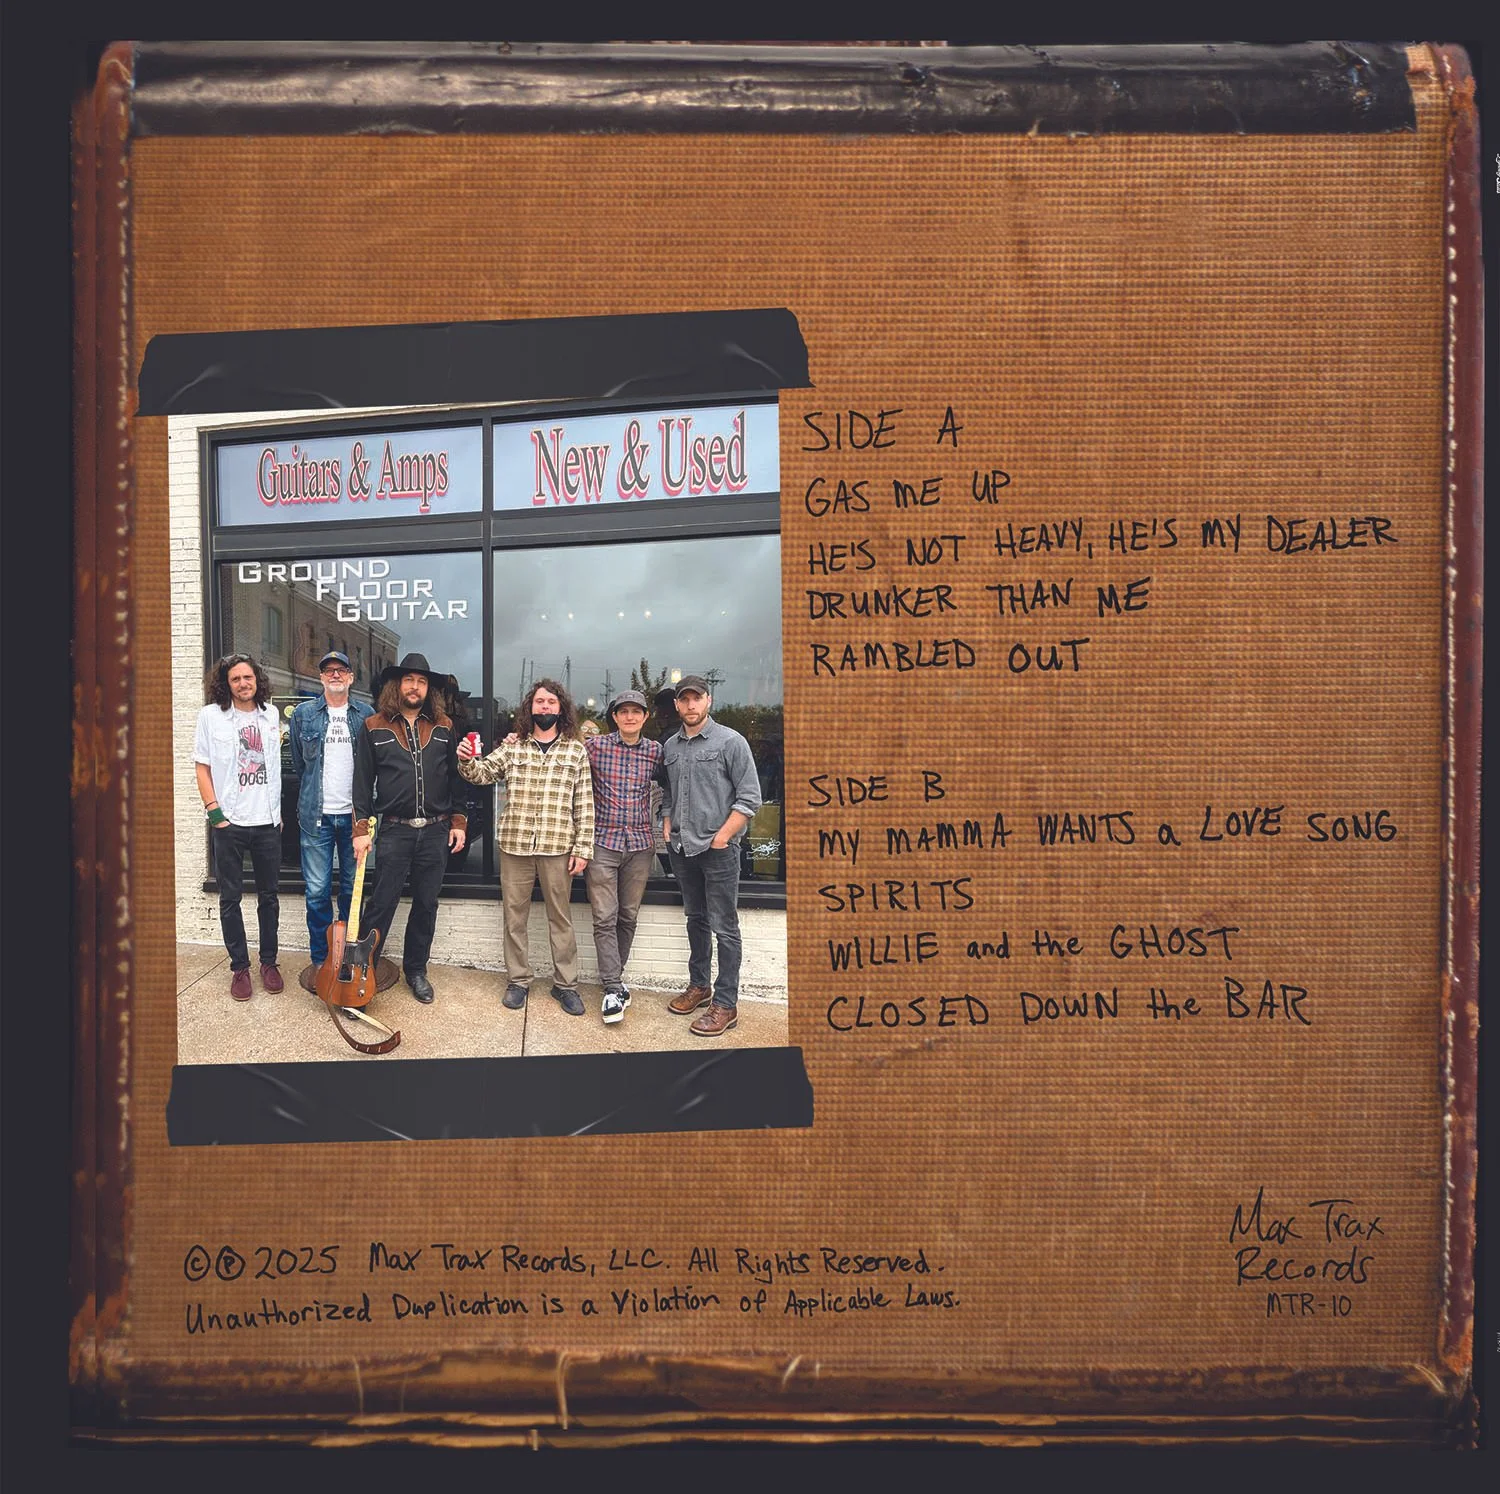 Guitars & Amps
New & Used
GROUND
FLOOR
GUITAR
SIDE A
GAS mE UP
HE'S NOT HEAVY, HE'S MY DEALER
DRUNKER THAN ME
RAMBLED OUT
SIDE B
MY MAMMA WANTS a LOVE SONG
SPIRITS
WILLIE and the GHOST
CLOSED DOWN the BAR
©℗2025 Max Trax Records, LLC. All Rights Reserved.
Unauthorized Duplication is a Violation of Applicable Laws.
Max Trax
Records
MTR-10